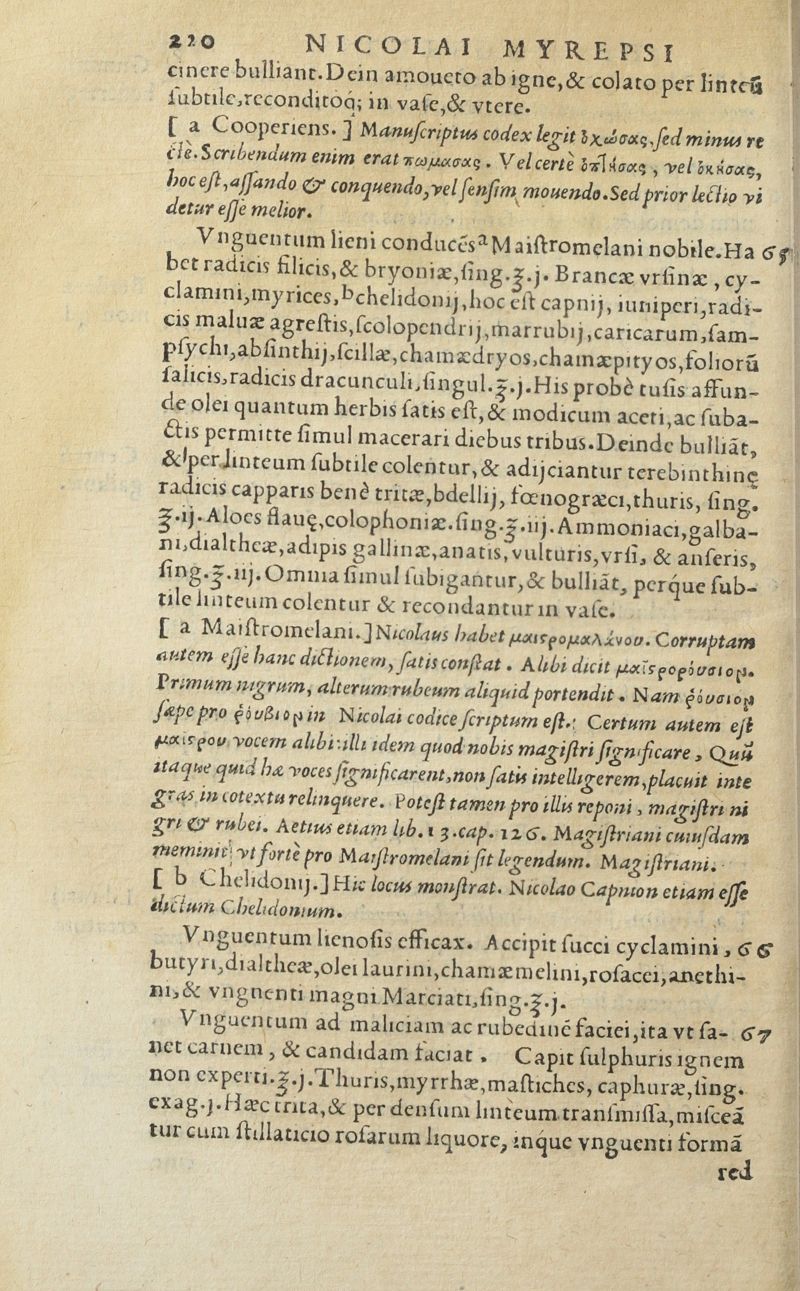 220 NICOLAI MYREPSI
cinere bulliant. Dein amoueto ab igne, & colato per linteũ
ſubtile, reconditoq́; in vaſe, & vtere.
[ a Cooperiens. ] Manuſcriptus codex legit ὀχώσας, ſed minus re
cte. Scribendum enim erat πωμάσας. Vel certè ὀπ]ήσας, vel ὀκήσας,
hoc eſt, aſſando & conquendo, vel ſenſim mouendo. Sed prior lectio vi
detur eſſe melior.
Vnguentum lieni conducẽsᵃ Maiſtromelani nobile. Ha 65
bet radicis filicis, & bryoniæ, ſing.℥.j. Brancæ vrſinæ, cy-
clamini, myrices, ᵇchelidonij, hoc eſt capnij, iuniperi, radi-
cis maluæ agreſtis, ſcolopendrij, marrubij, caricarum, ſam-
pſychi, abſinthij, ſcillæ, chamædryos, chamæpityos, foliorũ
ſalicis, radicis dracunculi, ſingul.℥.j. His probè tuſis affun-
de olei quantum herbis ſatis eſt, & modicum aceti, ac ſuba-
ctis permitte ſimul macerari diebus tribus. Deinde bulliãt,
& per linteum ſubtile colentur, & adijciantur terebinthinę
radicis capparis benè tritæ, bdellij, fœnogræci, thuris, ſing.
℥.ij. Aloes flauę, colophoniæ. ſing.℥.iij. Ammoniaci, galba-
ni, dialtheæ, adipis gallinæ, anatis, vulturis, vrſi, & anſeris,
ſing.℥.iij. Omnia ſimul ſubigantur, & bulliãt, perq́ue ſub-
tile linteum colentur & recondantur in vaſe.
[ a Maiſtromelani. ] Nicolaus habet μαιστρομαλάνου. Corruptam
autem eſſe hanc dictionem, ſatis conſtat. Alibi dicit μαϊστροῤόυσιον.
Primum nigrum, alterum rubeum aliquid portendit. Nam ῥόυσιον
ſæpe pro ῥόυβιον in Nicolai codice ſcriptum eſt. Certum autem eſt
μαιστρου vocem alibi illi idem quod nobis magiſtri ſignificare, Quũ
itaque quid hæ voces ſignificarent, non ſatis intelligerem, placuit inte
gras in cõtextu relinquere. Poteſt tamen pro illis reponi, magiſtri ni
gri & rubei. Aetius etiam lib. 13. cap. 126. Magiſtriani cuiuſdam
meminit, vt fortè pro Maiſtromelani ſit legendum. Magiſtriani.
[ b Chelidonij. ] Hic locus monſtrat. Nicolao Capnion etiam eſſe
dictum Chelidonium.
Vnguentum lienoſis efficax. Accipit ſucci cyclamini, 66
butyri, dialtheæ, olei laurini, chamæmelini, roſacei, anethi-
ni, & vnguenti magni Marciati, ſing.℥.j.
Vnguentum ad maliciam ac rubedinẽ faciei, ita vt ſa- 67
net carnem, & candidam faciat. Capit ſulphuris ignem
non experti.℥.j. Thuris, myrrhæ, maſtiches, caphuræ, ſing.
exag.j. Hæc trita, & per denſum linteum tranſmiſſa, miſceã
tur cum ſtillaticio roſarum liquore, inq́ue vnguenti formã
red